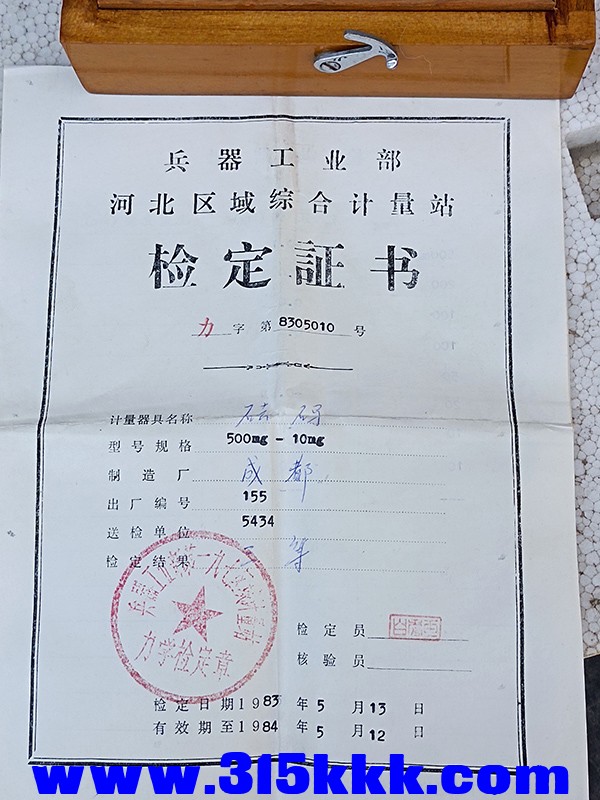 兵器工业部
河北区域综合计量站
检定証书
力字第8305010号
计量器具名称 砝码
型号规格 500mg - 10mg
制造厂 成都
出厂编号 155
送检单位 5434
检定结果 等
力学检定章
检定员
核验员
检定日期1983年5月13日
有效期至1984年5月12日
www.315kkk.com